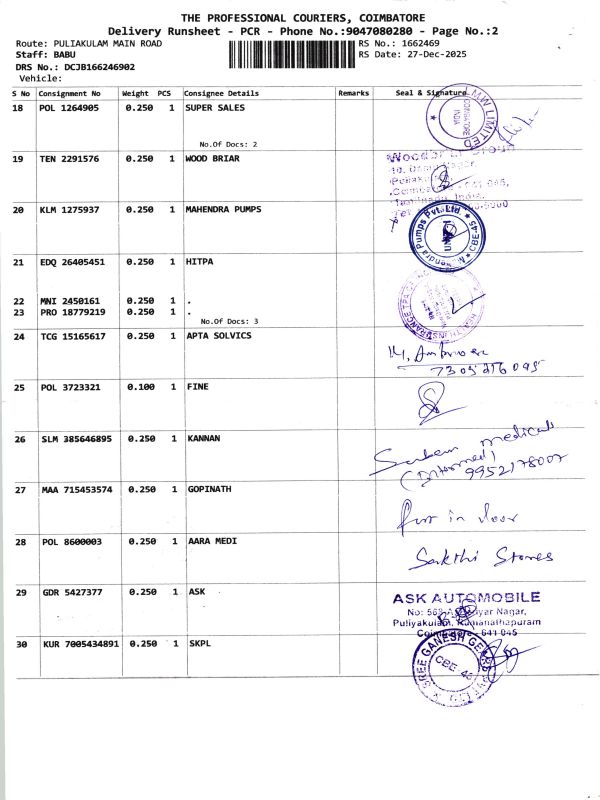 THE PROFESSIONAL COURIERS, COIMBATORE
Delivery Runsheet - PCR - Phone No.:9047080280 - Page No.:2
Route: PULIAKULAM MAIN ROAD
RS No.: 1662469
Staff: BABU
RS Date: 27-Dec-2025
DRS No.: DCJB166246902
Vehicle:
S No Consignment No Weight PCS Consignee Details Remarks Seal & Signature
18 POL 1264905 0.250 1 SUPER SALES
LIMITED
COIMBATORE
INDIA
No.Of Docs: 2
19 TEN 2291576 0.250 1 WOOD BRIAR
20 KLM 1275937 0.250 1 MAHENDRA PUMPS
Pumps Pvt. Ltd CBE-45
21 EDQ 26405451 0.250 1 HITPA
22 MNI 2450161 0.250 1 .
23 PRO 18779219 0.250 1 .
No.Of Docs: 3
24 TCG 15165617 0.250 1 APTA SOLVICS
25 POL 3723321 0.100 1 FINE
26 SLM 385646895 0.250 1 KANNAN
medicals
9952178007
27 MAA 715453574 0.250 1 GOPINATH
in door
28 POL 8600003 0.250 1 AARA MEDI
Sakthi Stores
29 GDR 5427377 0.250 1 ASK
ASK AUTOMOBILE
Puliyakulam, Ramanathapuram
Coimbatore - 641 045
30 KUR 7005434891 0.250 1 SKPL
SREE GANESH
CBE